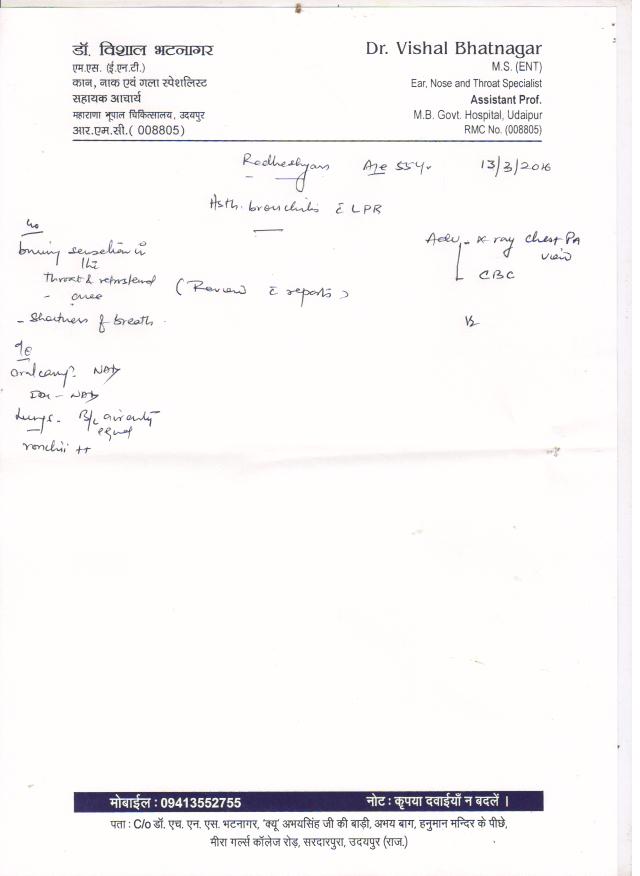 डॉ. विशाल भटनागर
एम.एस. (ई.एन.टी.)
कान, नाक एवं गला स्पेशलिस्ट
सहायक आचार्य
महाराणा भूपाल चिकित्सालय, उदयपुर
आर.एम.सी.( 008805)
Dr. Vishal Bhatnagar
M.S. (ENT)
Ear, Nose and Throat Specialist
Assistant Prof.
M.B. Govt. Hospital, Udaipur
RMC No. (008805)
Radheshyam Age 55yr 13/3/2016
bronchitis c LPR
Adv - X ray chest PA
view
CBC
burning sensation in
the
Throat & retrosternal
area
(Review c reports)
- Shortness of breath
O/E
oral cavity - NAD
NAD
Lungs - B/L air entry
equal
ronchii ++
मोबाईल : 09413552755 नोट : कृपया दवाईयाँ न बदलें ।
पता : C/o डॉ. एच. एन. एस. भटनागर, 'क्यू' अभयसिंह जी की बाड़ी, अभय बाग, हनुमान मन्दिर के पीछे,
मीरा गर्ल्स कॉलेज रोड़, सरदारपुरा, उदयपुर (राज.)